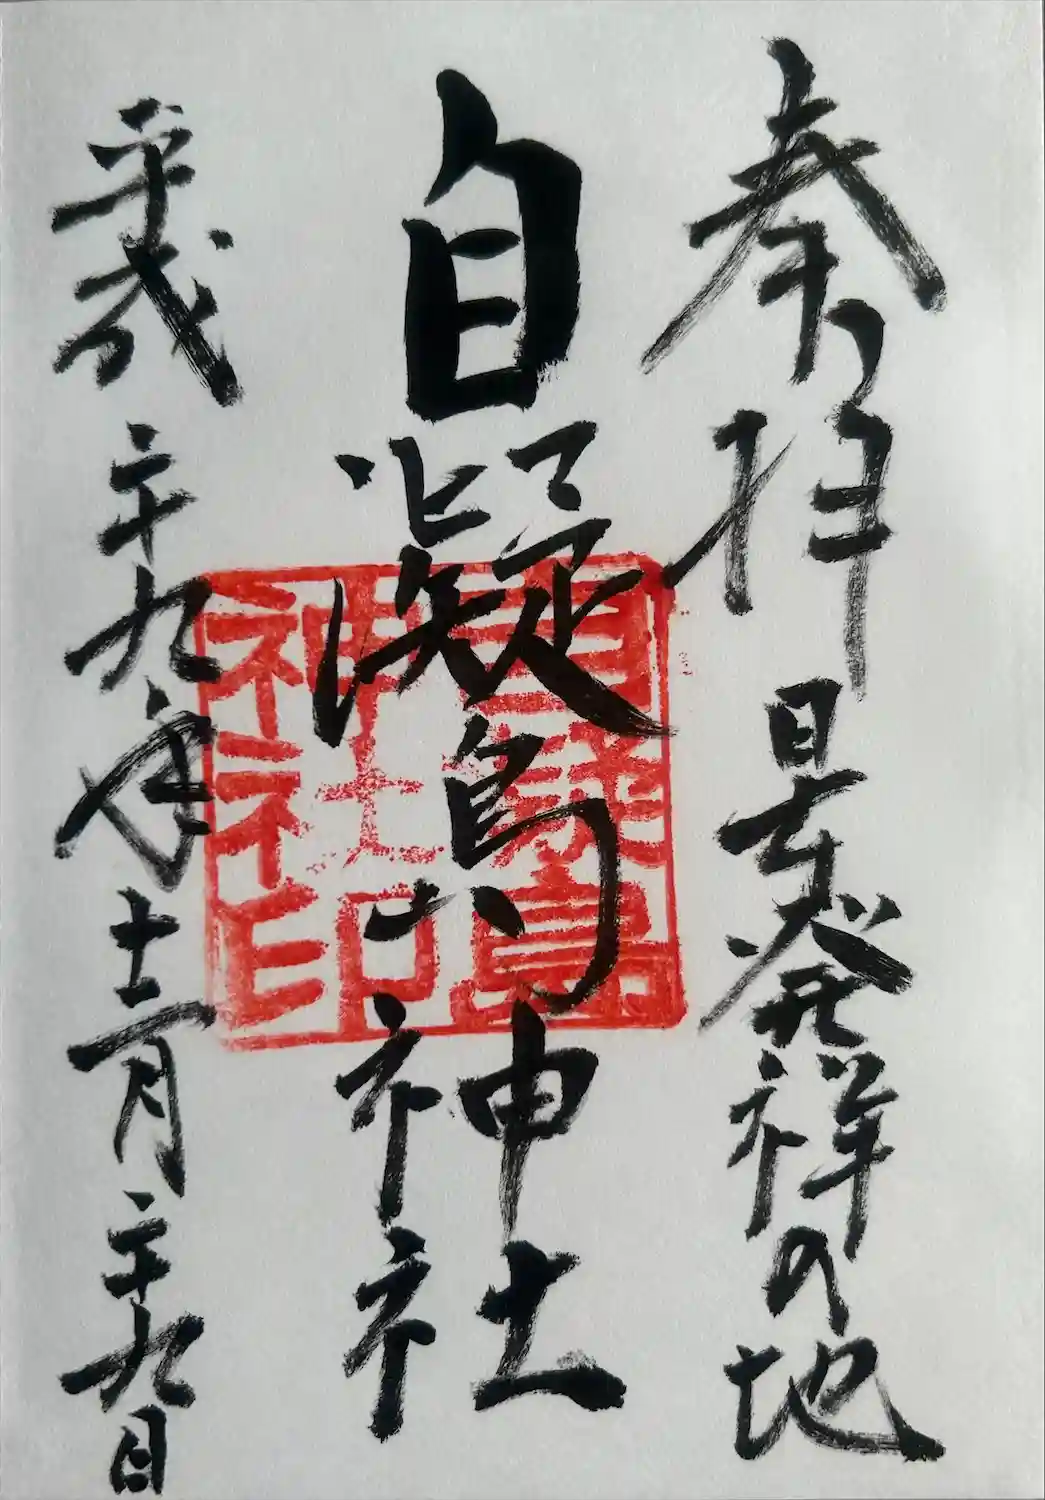 奉拝 日本発祥の地
自凝島神社
平成二十九年十二月二十九日
自凝島
神社印